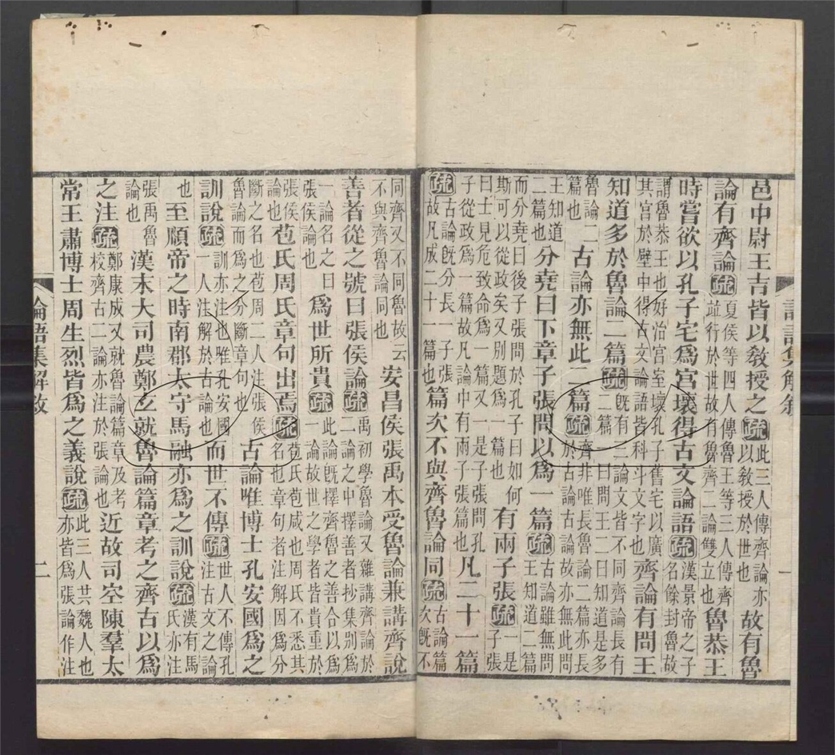 論語集解敘 一
邑中尉王吉皆以敎授之疏此三人傳齊論亦以敎授於世也故有魯
論有齊論疏夏侯等四人傳魯王等三人傳齊並行於世故有魯齊二論雙立也魯恭王
時嘗欲以孔子宅爲宮壞得古文論語疏漢景帝之子名餘封魯故
謂魯恭王也好治宮室壞孔子舊宅以廣其宮於壁中得古文論語皆科斗文字也齊論有問王
知道多於魯論二篇疏旣有二論文皆不同齊論長有二篇一曰問王二曰知道是多
魯論二篇也古論亦無此二篇疏齊非唯長魯論二篇亦長於古論古論故亦無此問
王知道二篇也分堯曰下章子張問以爲一篇疏古論雖無問王知道二篇
而分堯曰後子張問於孔子曰如何斯可以從政矣又別題爲一篇也有兩子張疏一是子張
曰士見危致命爲一篇又一是子張問孔子從政爲一篇故凡論中有兩子張篇也凡二十一篇
疏古論旣分長一子張故凡成二十一篇也篇次不與齊魯論同疏古論篇次旣不
同齊又不同魯故云不與齊魯論同也安昌侯張禹本受魯論兼講齊說
善者從之號曰張侯論疏禹初學魯論又雜講齊論於二論之中擇善者抄集別爲
一論名之曰張侯論也爲世所貴疏此論旣擇齊魯之善合以爲一論故世之學者皆貴重於
張侯論也苞氏周氏章句出焉疏苞氏苞咸也周氏不悉其名也章句者注解因爲分
斷之名也苞周二人注張侯魯論而爲之分斷章句也古論唯博士孔安國爲之
訓說疏訓亦注也唯孔安國一人注解於古論也而世不傳疏世人不傳孔注古文之論
也至順帝之時南郡太守馬融亦爲之訓說疏漢有馬氏亦注
張禹魯論也漢末大司農鄭玄就魯論篇章考之齊古以爲
之注疏鄭康成又就魯論篇章及考校齊古二論亦注於張論也近故司空陳羣太
常王肅博士周生烈皆爲之義說疏此三人共魏人也亦皆爲張論作注
論語集解敘 二